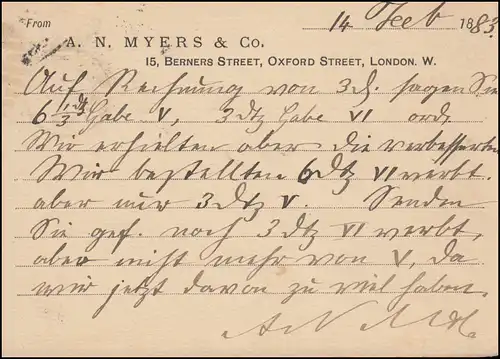 From 14 Feb 1883.
A. N. MYERS & Co.
15, BERNERS STREET, OXFORD STREET, LONDON. W.
Auf Rechnung von 3 d. sagen Sie
6 1/3 dtz Gabe V, 3 dtz Gabe VI ord,
Wir erhielten aber die verbesserten
Wir bestellten 6 dtz VI verbt.
aber nur 3 dtz V. Senden
Sie gef. noch 3 dtz VI verbt,
aber nicht mehr von V, da
wir jetzt davon zu viel haben.
A N M